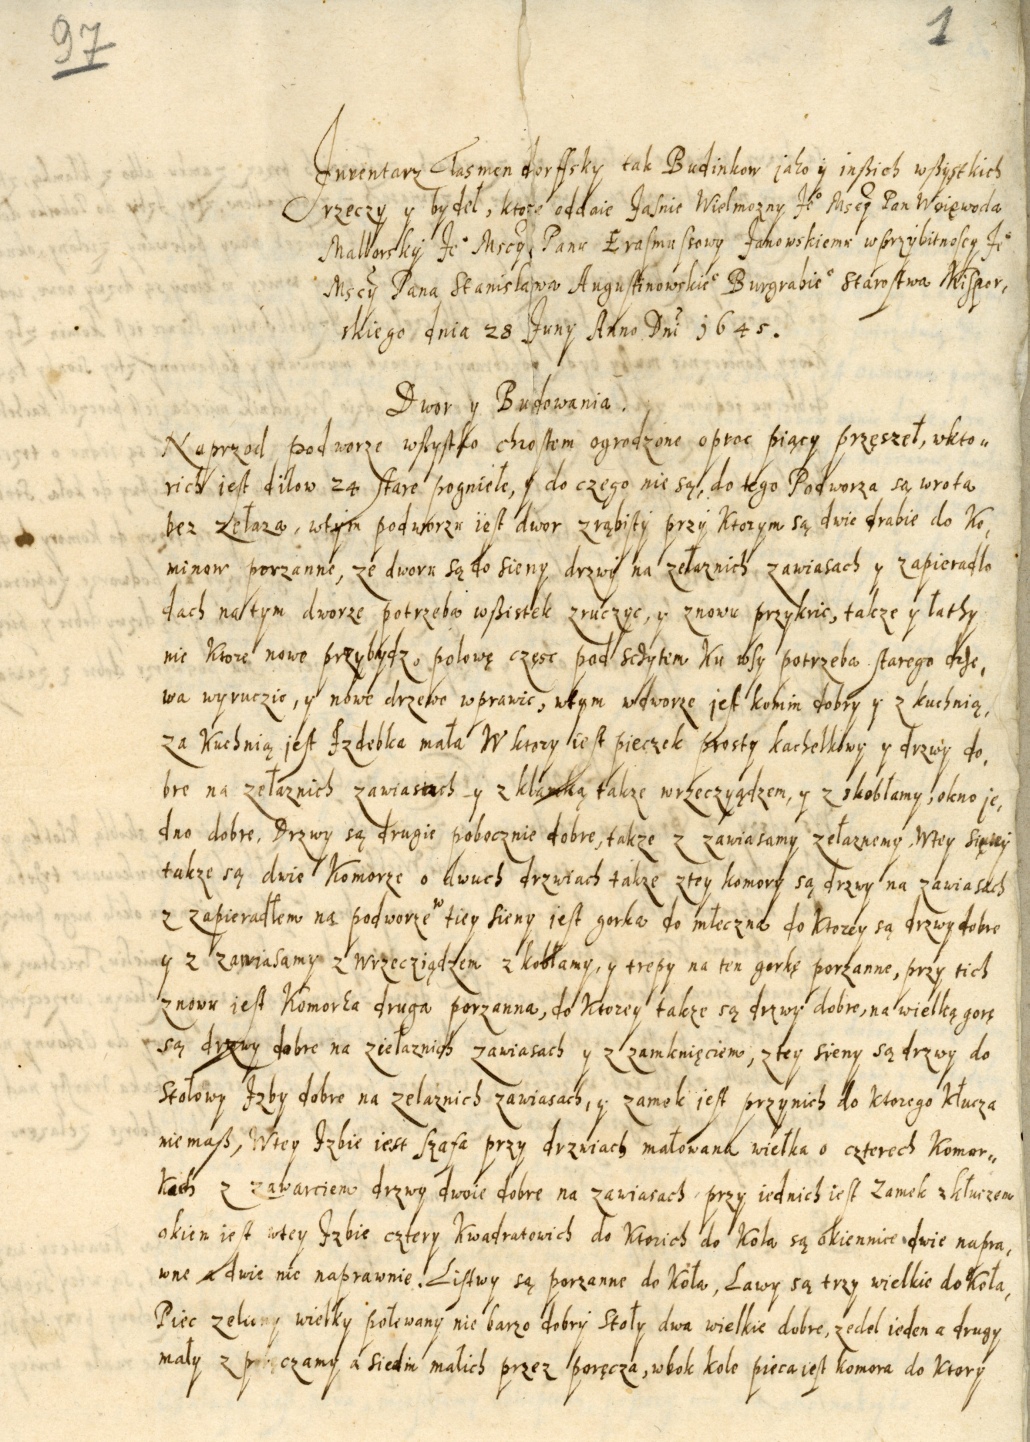 97
1
Inventarz Tasmendorffsky tak Budinkow jako y inßich wßystkich
rzeczy y bydeł, ktore oddaie Jasnie Wielmozny Je° Mscy Pan Woiewoda
Malborsky Je° Mscy Panu Erasmusowy Janowskiemu wprzybitnoscy Je°
Mscy Pana Stanisława Augustinowskie° Burgrabie° Starostwa Kißpor,
skiego dnia 28 Juny Anno Dni 1645.
Dwor y Budowania.
Naprzod podworze wßystko chrostem ogrodzone oproc piący przęszeł, wkto„
rich iest dilow 24 stare pogniełe, y do czego nie są, do tego Podworza są wrota
bez zełaza, wtym podworzu iest dwor zrąbisty przy ktorym są dwie drabie do Ko,
minow porzanne, ze dworu są do sieny drzwi na zełaznich zawiasach y zapieradło
dach na tym dworze potrzeba wßistek zruczyc, y znowu przykric, takze y łathy
nie ktore nowe przybydz, polowę częsc pod sczytem ku wsy potrzeba starego drze,
wa wyruczic, y nowe drzewo wprawic, wtym wdworze jest komin dobry y z kuchnią,
za kuchnią jest Izdebka mała W ktory iest pieczek prosty kachelkowy y drzwy do,
bre na zełaznich zawiasiach y z klamką takze wrzeczyądzem, y z skobłamy, okno je,
dno dobre. Drzwy są drugie pobocznie dobre, takze z zawiasamy zełaznemy. Wtey sieniey
takze są dwie Komorze o dwuch drzwiach takze ztey komory są drzwy na zawiasach
z zapieradłem na podworze w tiey sieny jest gorka do młeczna do ktorey są drzwy dobre
y z zawiasamy z wrzecziądzem z kobłamy, y trepy na ten gorkę porzanne, przy tich
znowu iest Komorka druga porzanna, do ktorey takze są drzwy dobre, na wielką gorę
są drzwy dobre na ziełaznich zawiasach y z zamknięciem, ztey sieny są drzwy do
Stołowy Izby dobre na zelaznich zawiasach, y zamek jest przynich do ktorego kłucza
niemaß, Wtey Izbie iest szafa przy drzwiach małowana wielka o czterech Komor„
kach z zawarciem drzwy dwoie dobre na zawiasach przy iednich iest zamek z kłuczem
okien iest wtey Izbie cztery kwadratowich do ktorich do koła są okiennice dwie napra,
wne a dwie nie naprawnie. Listwy są porzanne do koła, Lawy są trzy wielkie do koła,
Piec zeluny wielky połewany nie barzo dobry Stoły dwa wielkie dobre, zedel ieden a drugy
mały z a siedm małich przez poręcza, wbok kole pieca iest komora do ktory